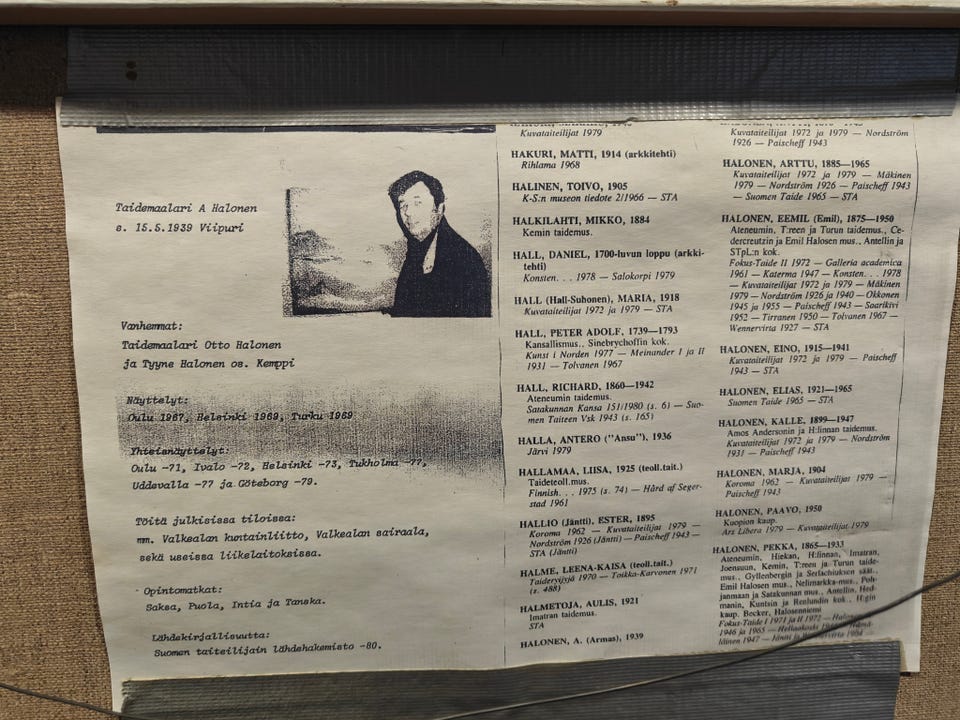 Taidemaalari A Halonen
s. 15.5.1939 Viipuri
Vanhemmat:
Taidemaalari Otto Halonen
ja Tyyne Halonen os. Kemppi
Näyttelyt:
Oulu 1967, Helsinki 1969, Turku 1969
Yhteisnäyttelyt:
Oulu -71, Ivalo -72, Helsinki -73, Tukholma -77,
Uddevalla -77 ja Göteborg -79.
Töitä julkisissa tiloissa:
mm. Valkealan kuntainliitto, Valkealan sairaala,
sekä useissa liikelaitoksissa.
Opintomatkat:
Saksa, Puola, Intia ja Tanska.
Lähdekirjallisuutta:
Suomen taiteilijain lähdehakemisto -80.
Kuvataiteilijat 1979
HAKURI, MATTI, 1914 (arkkitehti)
Rihlama 1968
HALINEN, TOIVO, 1905
K-S:n museon tiedote 2/1966 — STA
HALKILAHTI, MIKKO, 1884
Kemin taidemus.
HALL, DANIEL, 1700-luvun loppu (arkki-
tehti)
Konsten. . . 1978 — Salokorpi 1979
HALL (Hall-Suhonen), MARIA, 1918
Kuvataiteilijat 1972 ja 1979 — STA
HALL, PETER ADOLF, 1739—1793
Kansallismus., Sinebrychoffin kok.
Kunst i Norden 1977 — Meinander I ja II
1931 — Tolvanen 1967
HALL, RICHARD, 1860—1942
Ateneumin taidemus.
Satakunnan Kansa 151/1980 (s. 6) — Suo-
men Taiteen Vsk 1943 (s. 165)
HALLA, ANTERO ("Ansu"), 1936
Järvi 1979
HALLAMAA, LIISA, 1925 (teoll.tait.)
Taideteoll.mus.
Finnish. . . 1975 (s. 74) — Hård af Seger-
stad 1961
HALLIO (Jäntti), ESTER, 1895
Koroma 1962 — Kuvataiteilijat 1979 —
Nordström 1926 (Jäntti) — Paischeff 1943 —
STA (Jäntti)
HALME, LEENA-KAISA (teoll.tait.)
Taideryijyjä 1970 — Toikka-Karvonen 1971
(s. 488)
HALMETOJA, AULIS, 1921
Imatran taidemus.
STA
HALONEN, A. (Armas), 1939
Kuvataiteilijat 1972 ja 1979 — Nordström
1926 — Paischeff 1943
HALONEN, ARTTU, 1885—1965
Kuvataiteilijat 1972 ja 1979 — Mäkinen
1979 — Nordström 1926 — Paischeff 1943
— Suomen Taide 1965 — STA
HALONEN, EEMIL (Emil), 1875—1950
Ateneumin, T:reen ja Turun taidemus., Ce-
dercreutzin ja Emil Halosen mus., Antellin ja
STpL:n kok.
Fokus-Taide II 1972 — Galleria academica
1961 — Katerma 1947 — Konsten. . . 1978
— Kuvataiteilijat 1972 ja 1979 — Mäkinen
1979 — Nordström 1926 ja 1940 — Okkonen
1945 ja 1955 — Paischeff 1943 — Saarikivi
1952 — Tirranen 1950 — Tolvanen 1967 —
Wennervirta 1927 — STA
HALONEN, EINO, 1915—1941
Kuvataiteilijat 1972 ja 1979 — Paischeff
1943 — STA
HALONEN, ELIAS, 1921—1965
Suomen Taide 1965 — STA
HALONEN, KALLE, 1899—1947
Amos Andersonin ja H:linnan taidemus.
Kuvataiteilijat 1972 ja 1979 — Nordström
1931 — Paischeff 1943
HALONEN, MARJA, 1904
Koroma 1962 — Kuvataiteilijat 1979 —
Paischeff 1943
HALONEN, PAAVO, 1950
Kuopion kaup.
Ars Libera 1979 — Kuvataiteilijat 1979
HALONEN, PEKKA, 1865—1933
Ateneumin, Hiekan, H:linnan, Imatran,
Joensuun, Kemin, T:reen ja Turun taide-
mus., Gyllenbergin ja Serlachiuksen säät.,
Emil Halosen mus., Nelimarkka-mus., Poh-
janmaan ja Satakunnan mus., Antellin, Hed-
manin, Kuntsin ja Renlundin kok., H:gin
kaup. Becker, Halosenniemi
Fokus-Taide I 1971 ja II 1972 —
1946 ja 1965 —